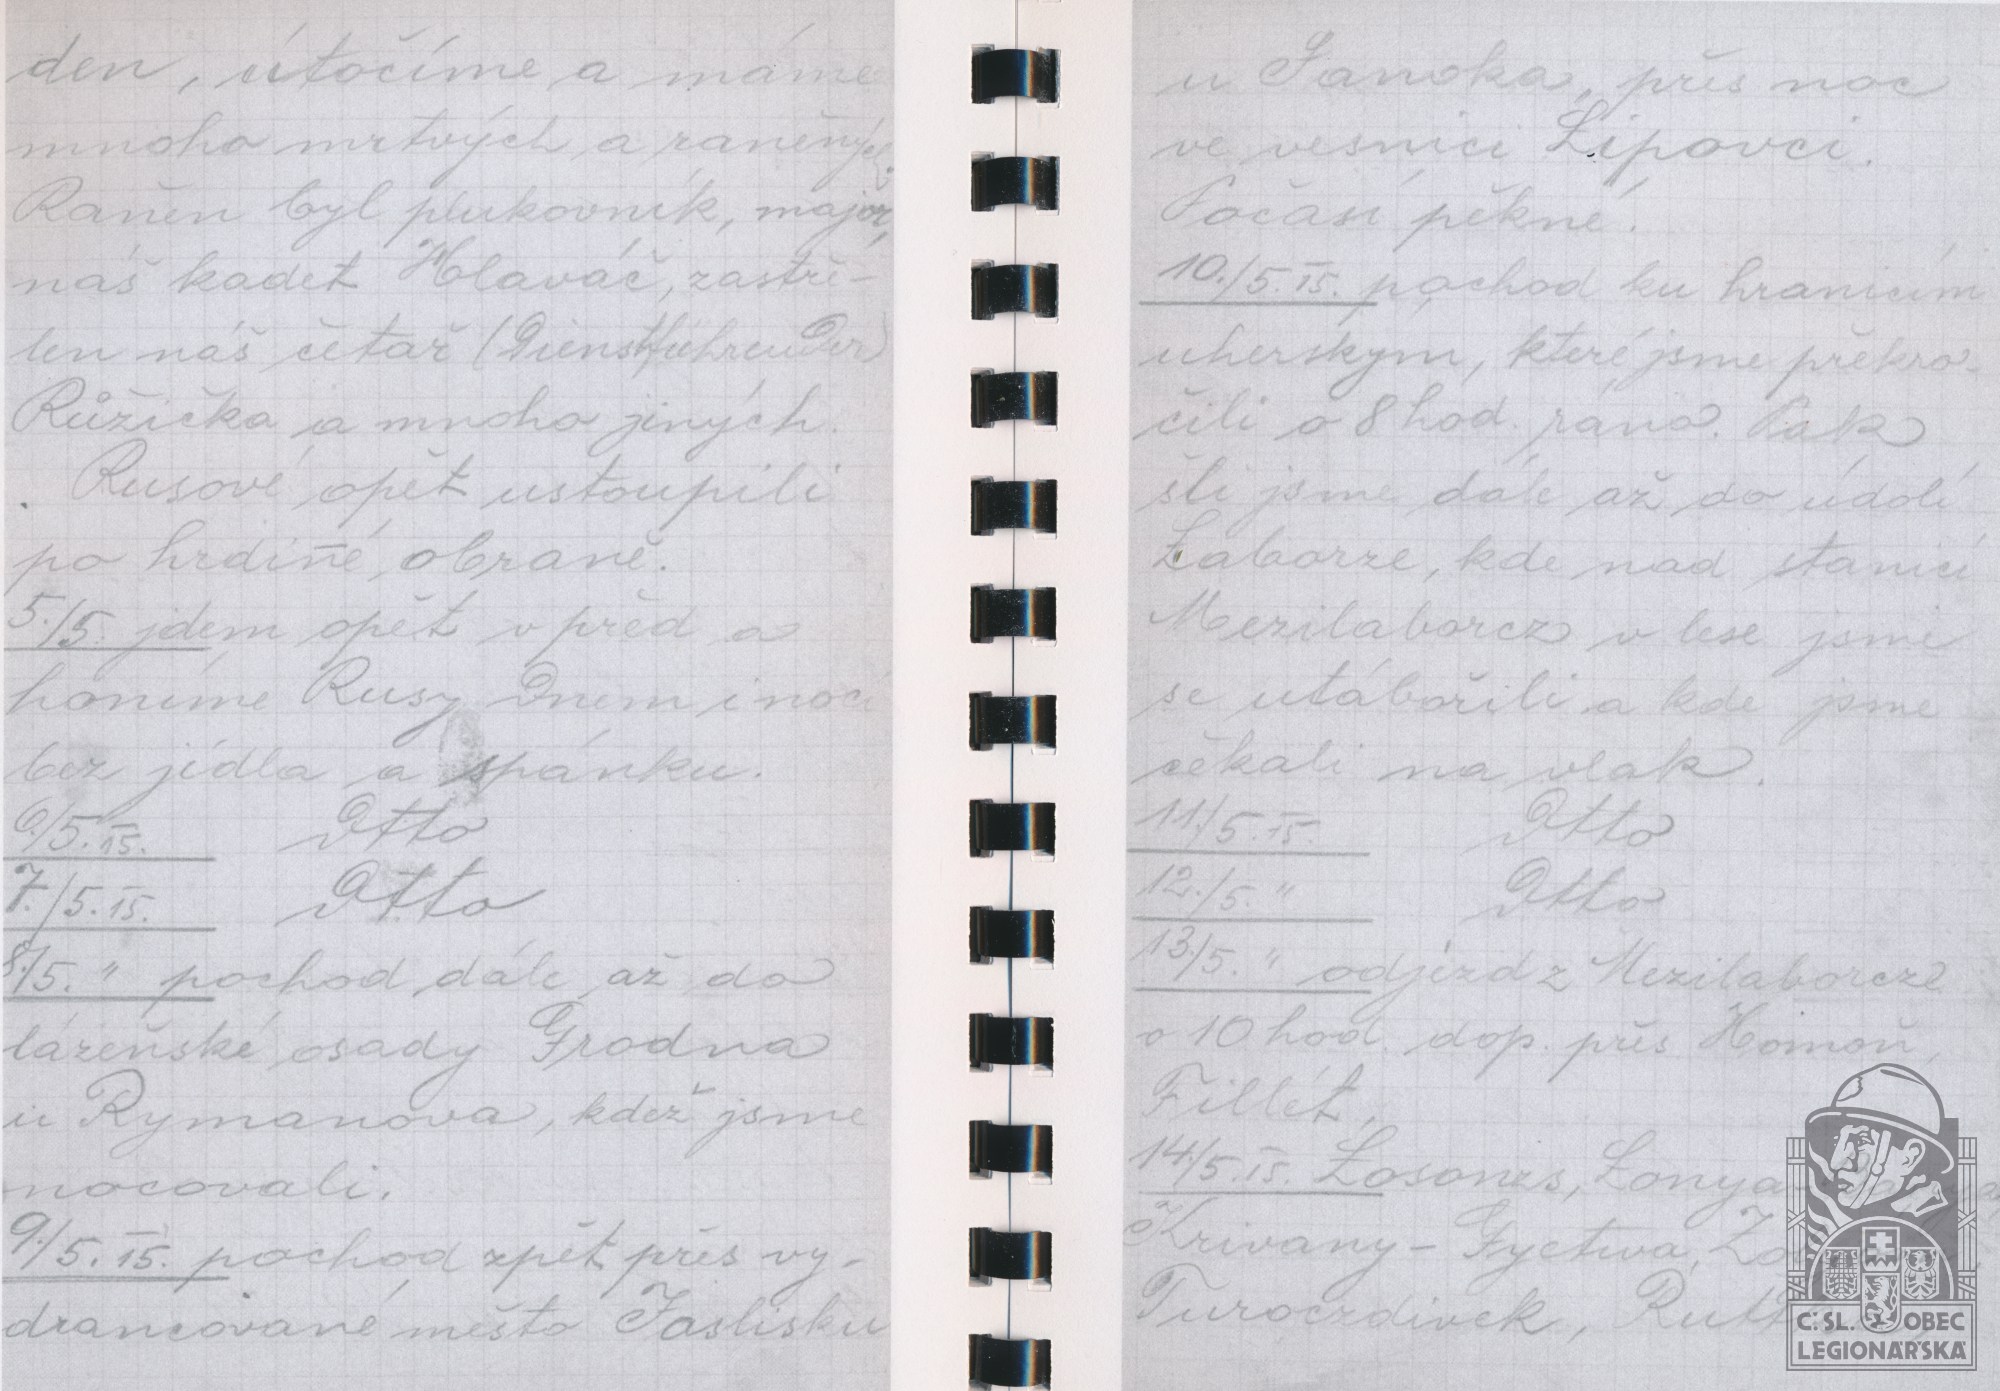 den, útočíme a máme
mnoho mrtvých a raněných.
Raněn byl plukovník, major,
náš kadet Hlaváč, zastře-
len náš četař (Dienstführender)
Růžička a mnoho jiných.
Rusové opět ustoupili
po hrdině obraně.
5./5. jdem opět v před a
honíme Rusy dnem i nocí
bez jídla a spánku.
6./5. 15. Otto
7./5. 15. Otto
8./5. " pochod dále až do
lázeňské osady Grodna
u Rymanova, kdež jsme
nocovali.
9./5. 15. pochod zpět přes vy-
drancované město Jaslisku
u Sanoka, přes noc
ve vesnici Lipovci.
Počasí pěkné.
10./5. 15. pochod ku hranicím
uherským, které jsme překro-
čili o 8 hod. ráno. Pak
šli jsme dále až do údolí
Laborze, kde nad stanicí
Mezilaborcz v lese jsme
se utábořili a kde jsme
čekali na vlak.
11./5. 15. Otto
12./5. " Otto
13./5. " odjezd z Mezilaborcze
o 10 hod. dop. přes Homoň,
Fillét,
14./5. 15. Losoncs, Lonya-
Krivany- Gyetwa,
Turoczdivek,
Č:SL. OBEC
LEGIONÁŘSKÁ